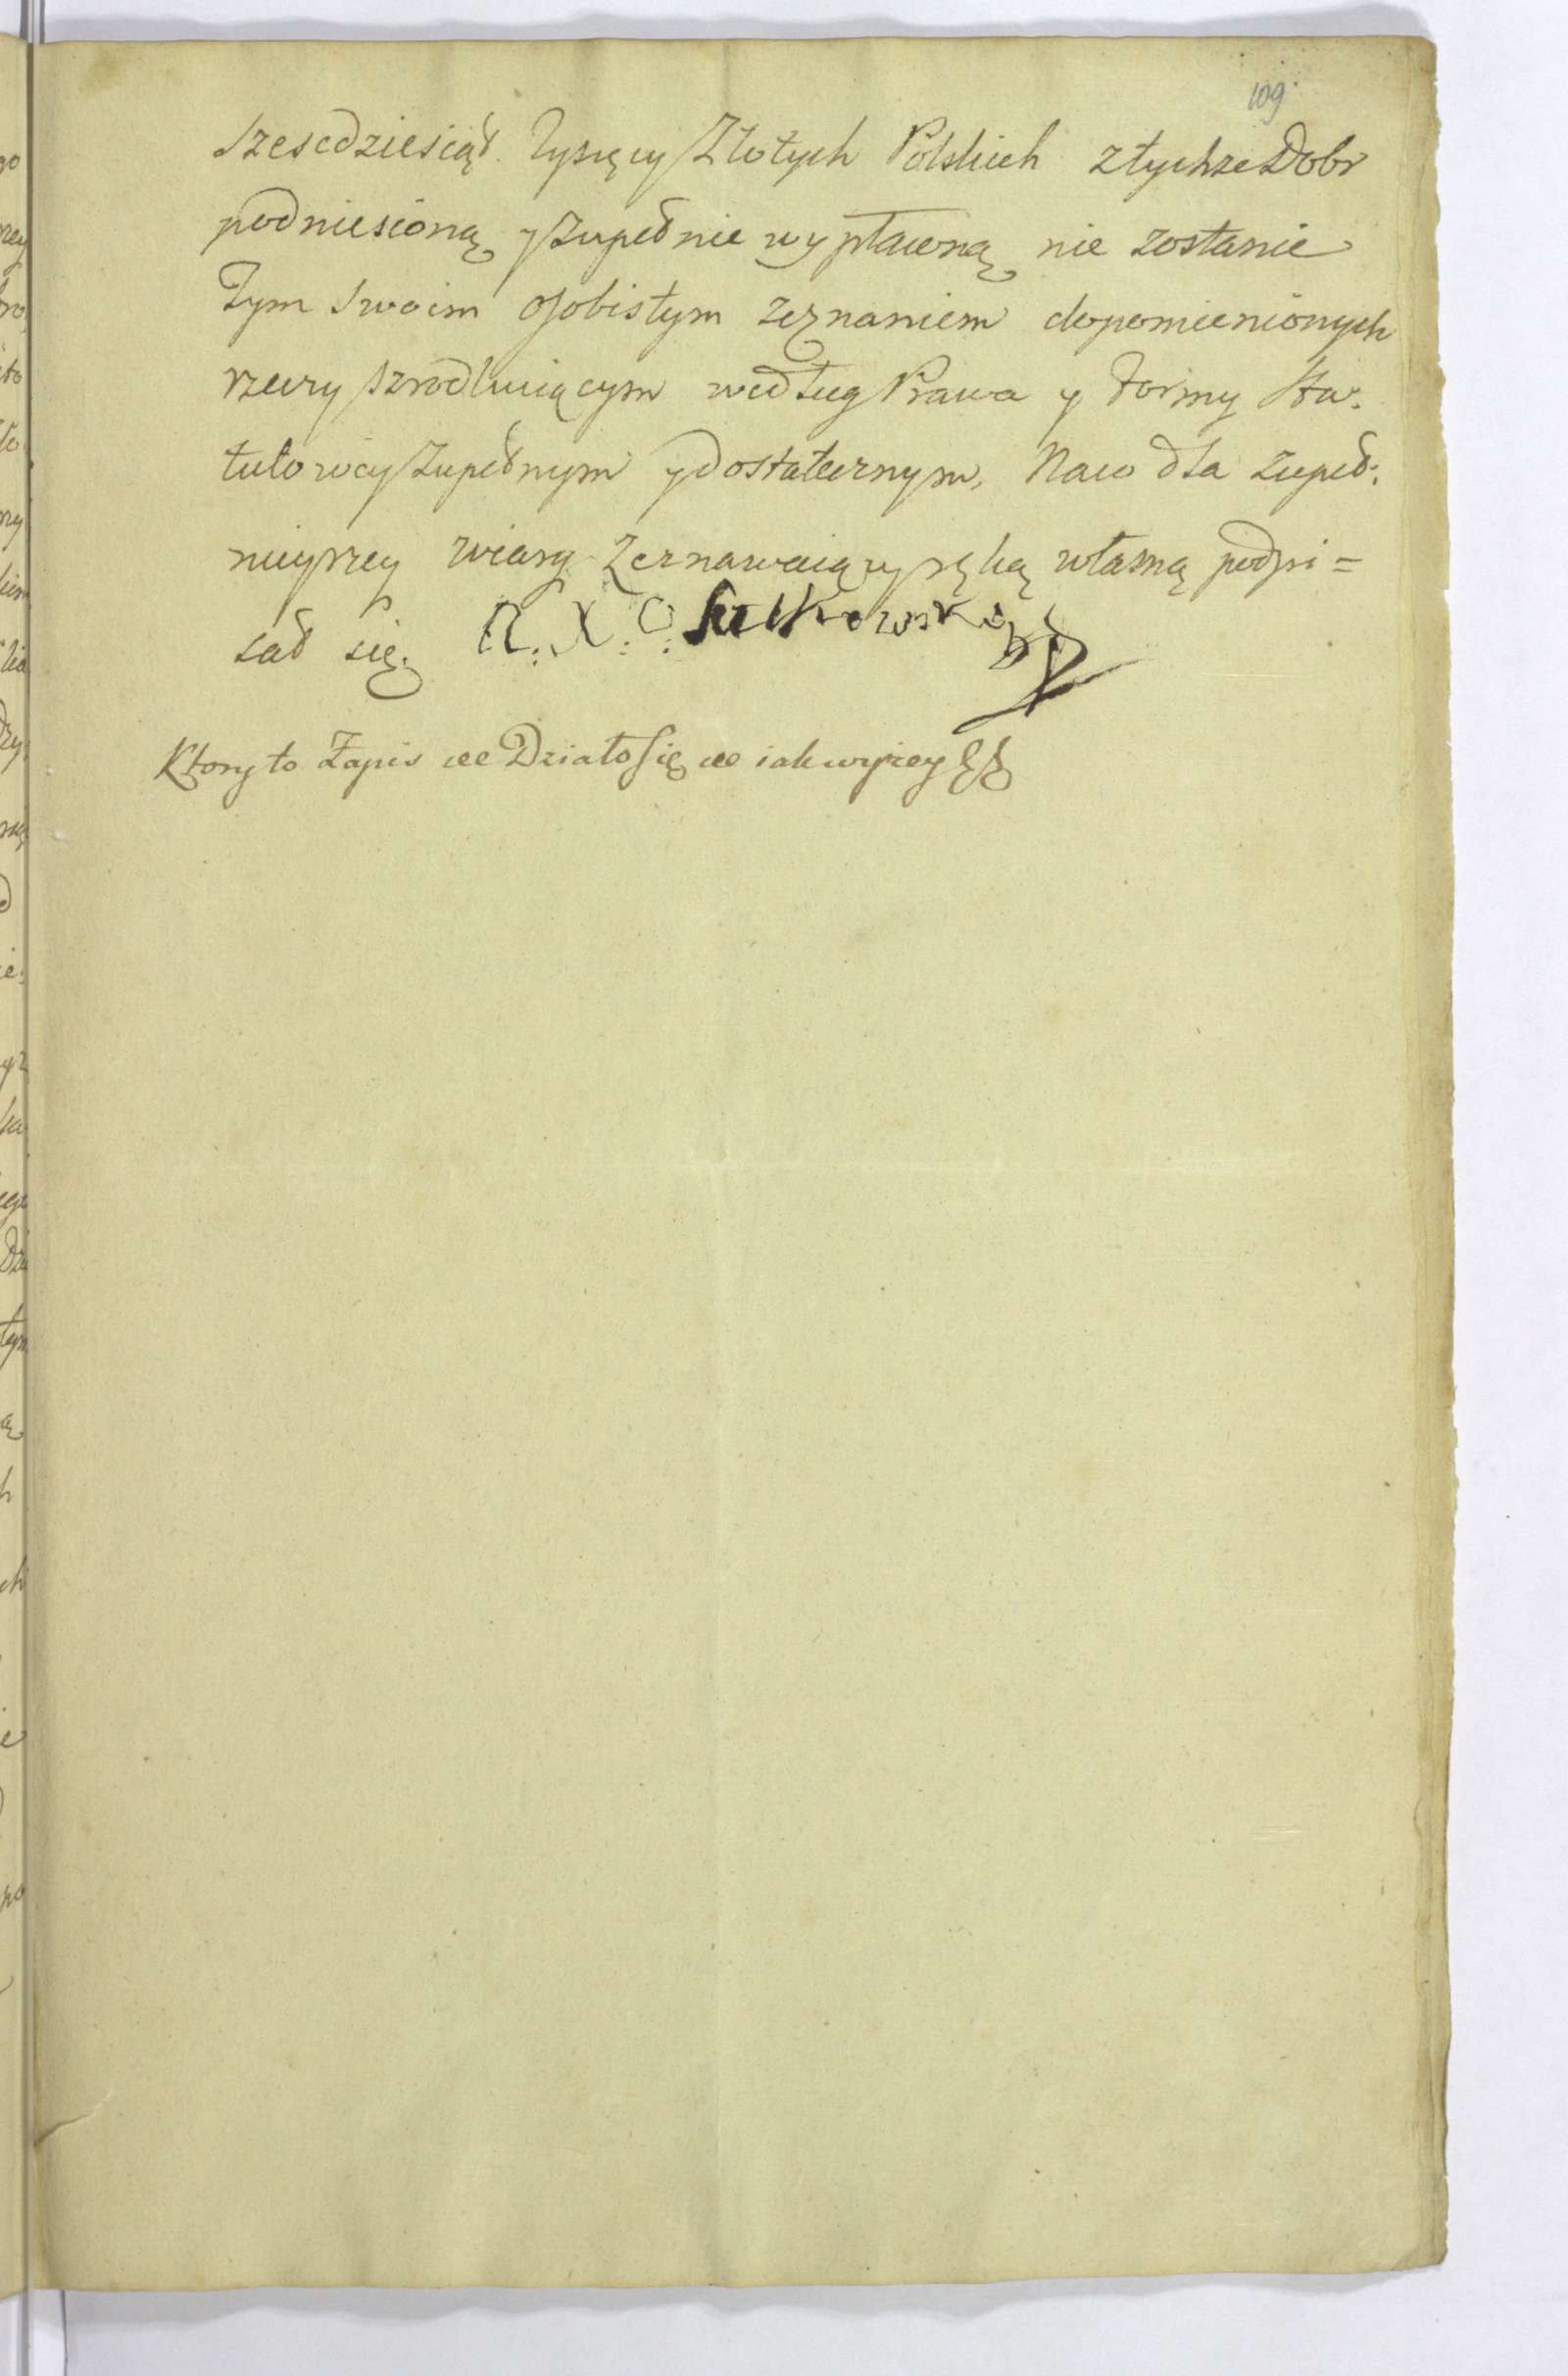 109
szescdziesiąt Tysięcy Złotych Polskich z tychże Dobr
podniesioną y zupełnie wypłaconą nie zostanie
Tym swoim osobistym zeznaniem dopomienionych
rzeczy szrodkuiącym według Prawa y formy Sta:
tutowey zupełnym y dostatecznym, Naco dla zupeł:
nieyszey wiary Zeznawaiący ręką własną podpi=
sał się. A. X. Sułkowski
Ktory to Zapis etc Działo się etc iak wyżey